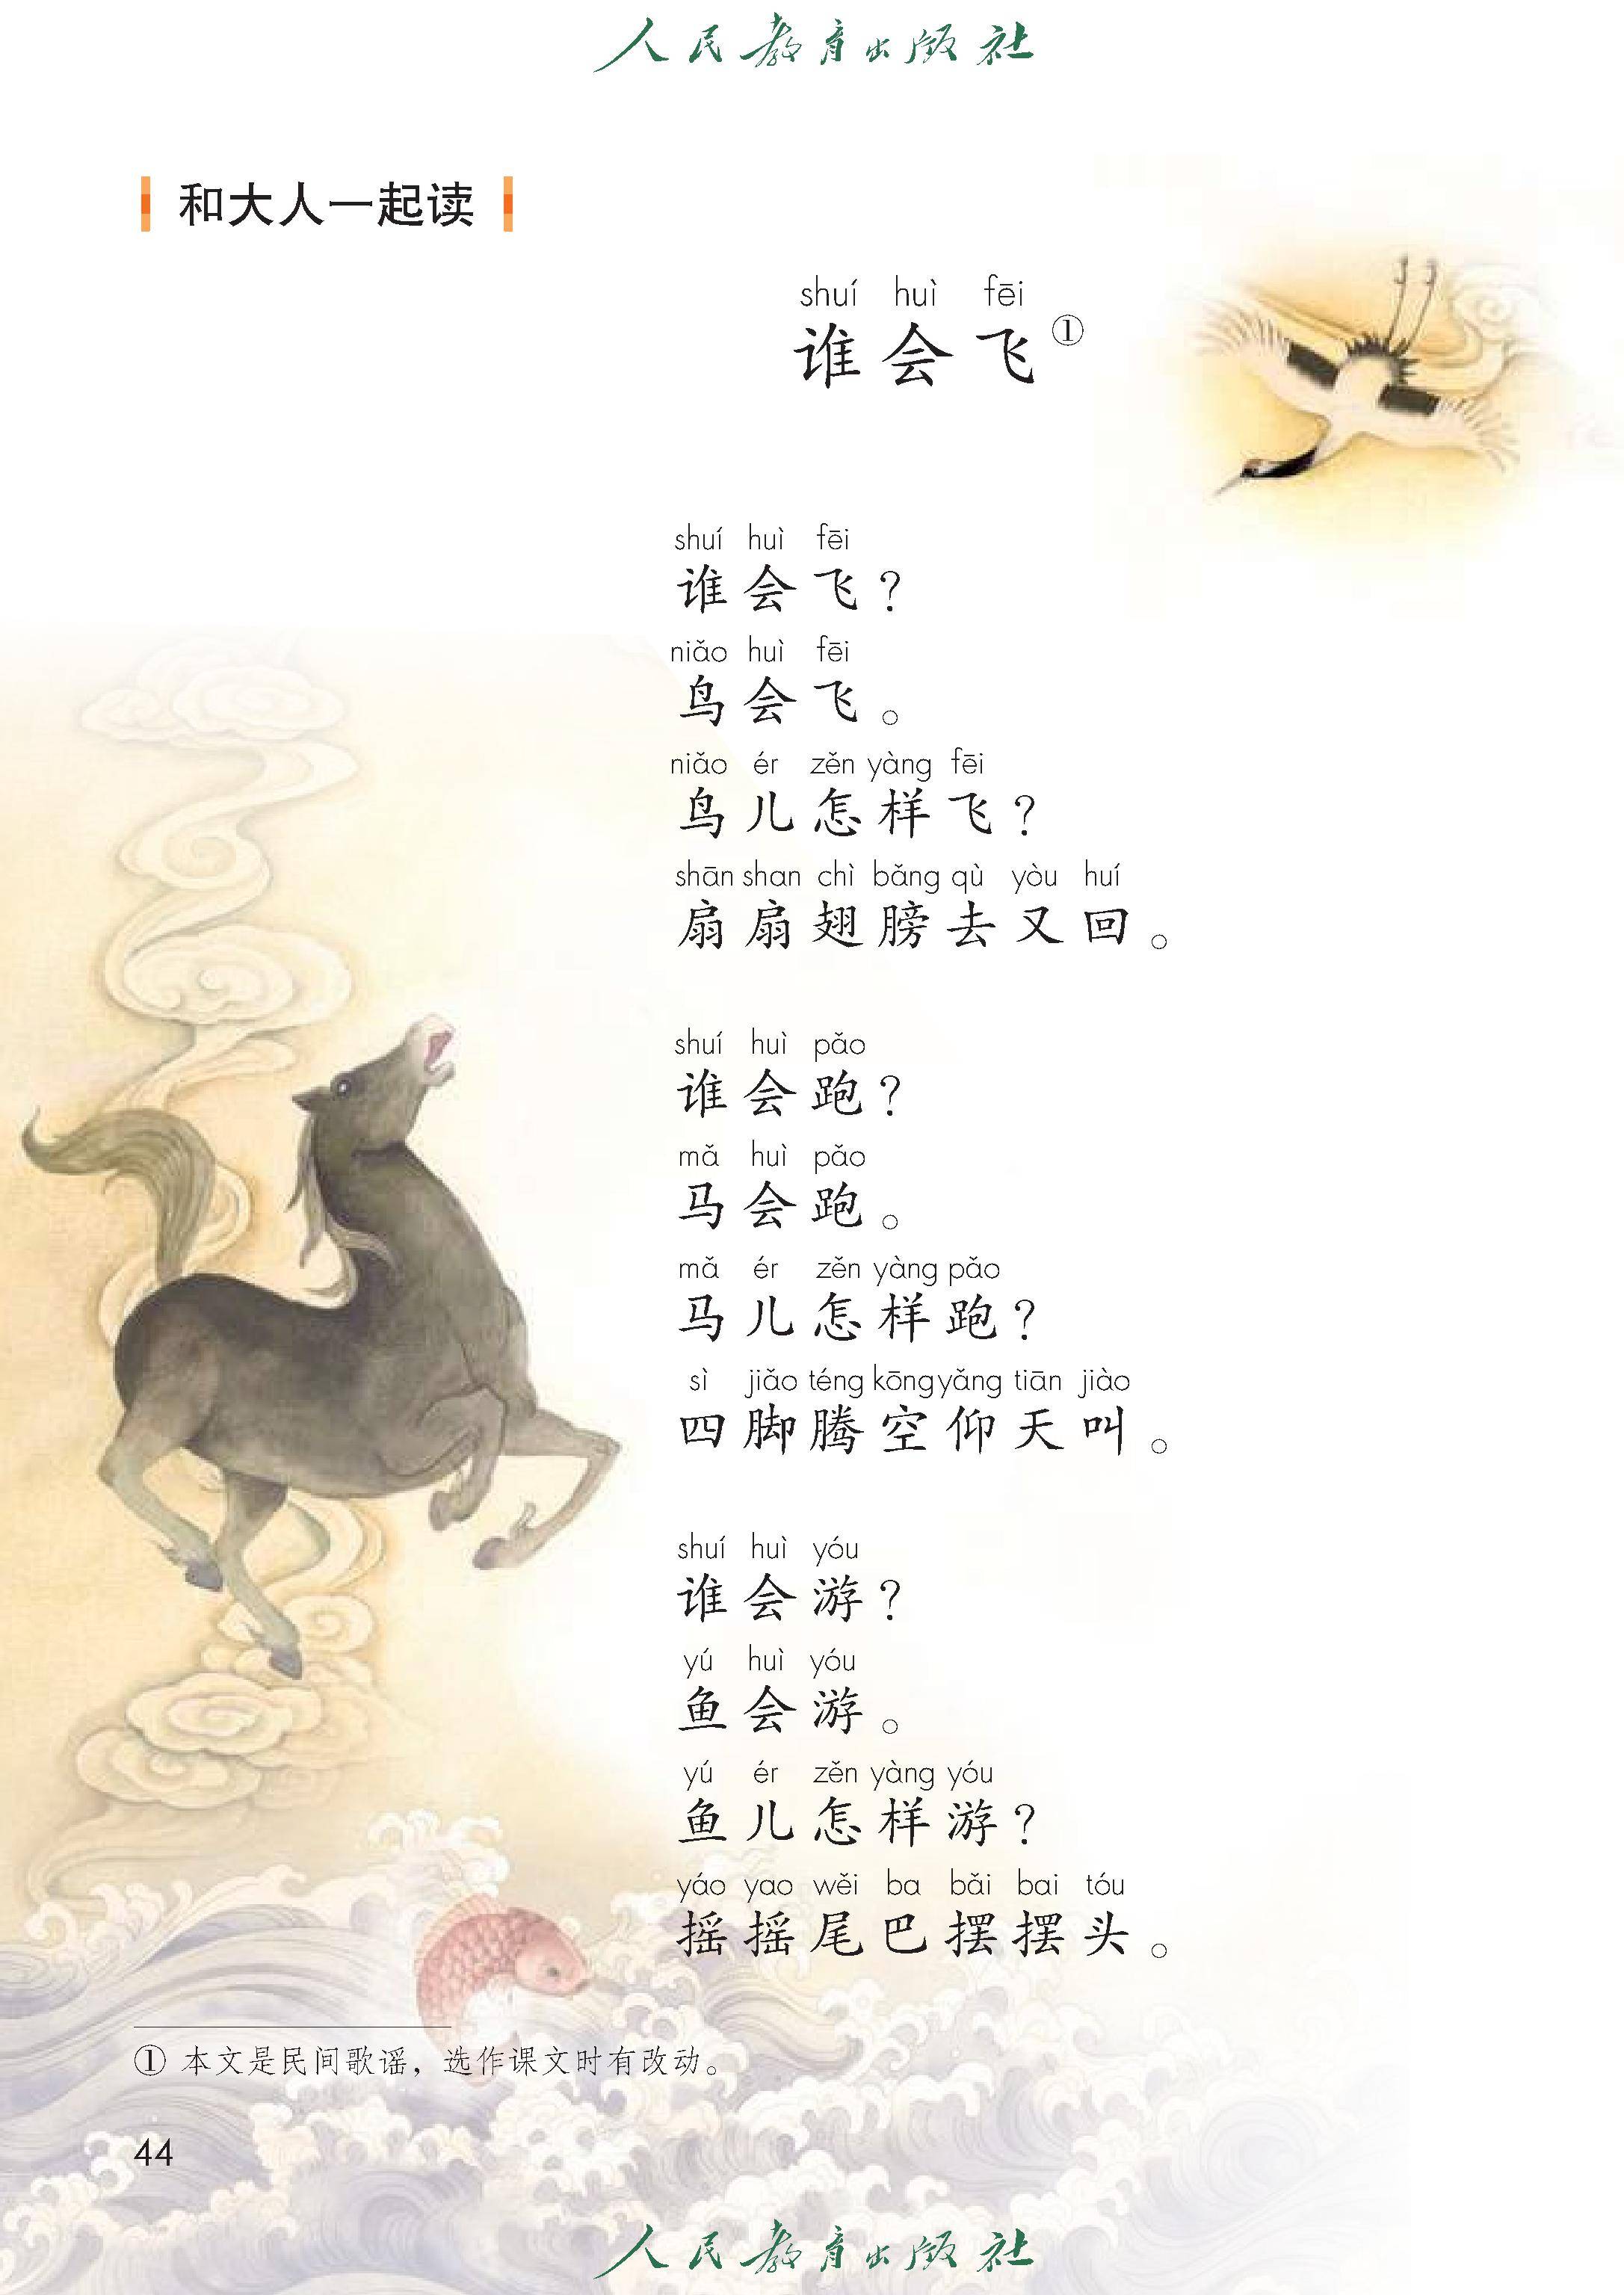 人民教育出版社
和大人一起读
shuí huì fēi
谁会飞①
shuí huì fēi
谁会飞？
niǎo huì fēi
鸟会飞。
niǎo ér zěn yàng fēi
鸟儿怎样飞？
shān shan chì bǎng qù yòu huí
扇扇翅膀去又回。
shuí huì pǎo
谁会跑？
mǎ huì pǎo
马会跑。
mǎ ér zěn yàng pǎo
马儿怎样跑？
sì jiǎo téng kōng yǎng tiān jiào
四脚腾空仰天叫。
shuí huì yóu
谁会游？
yú huì yóu
鱼会游。
yú ér zěn yàng yóu
鱼儿怎样游？
yáo yao wěi ba bǎi bai tóu
摇摇尾巴摆摆头。
① 本文是民间歌谣，选作课文时有改动。
44
人民教育出版社